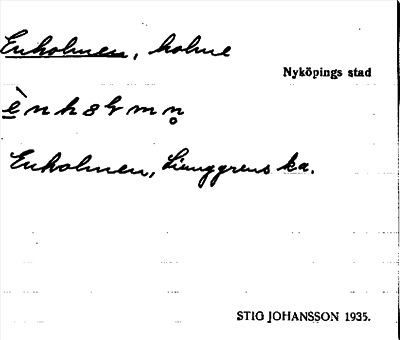 Enholmen, holme
Nyköpings stad
Enholmen, Ljunggrens ka.
STIG JOHANSSON 1935.